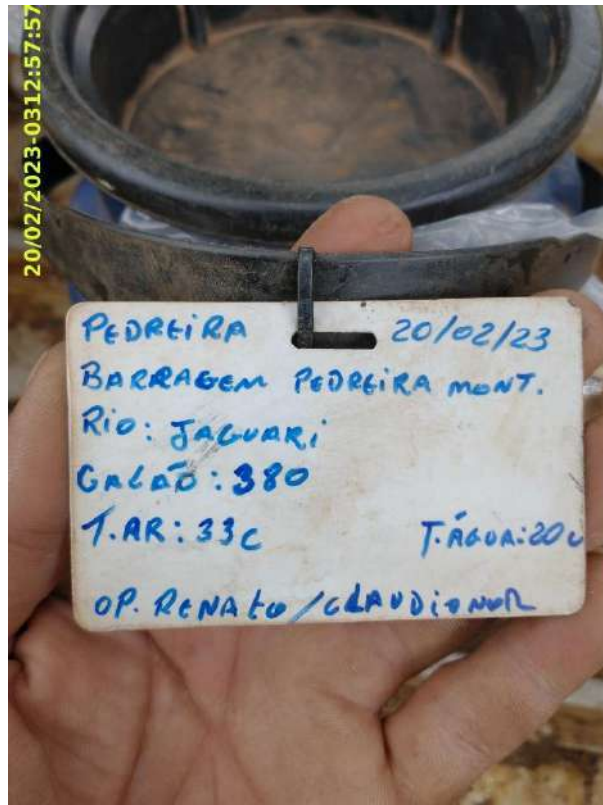 20/02/2023-0312:57:57
PEDREIRA 20/02/23
BARRAGEM PEDREIRA MONT.
RIO: JAGUARI
GALÃO: 380
T.AR: 33C T.ÁGUA: 20C
OP. RENATO/CLAUDIONOR